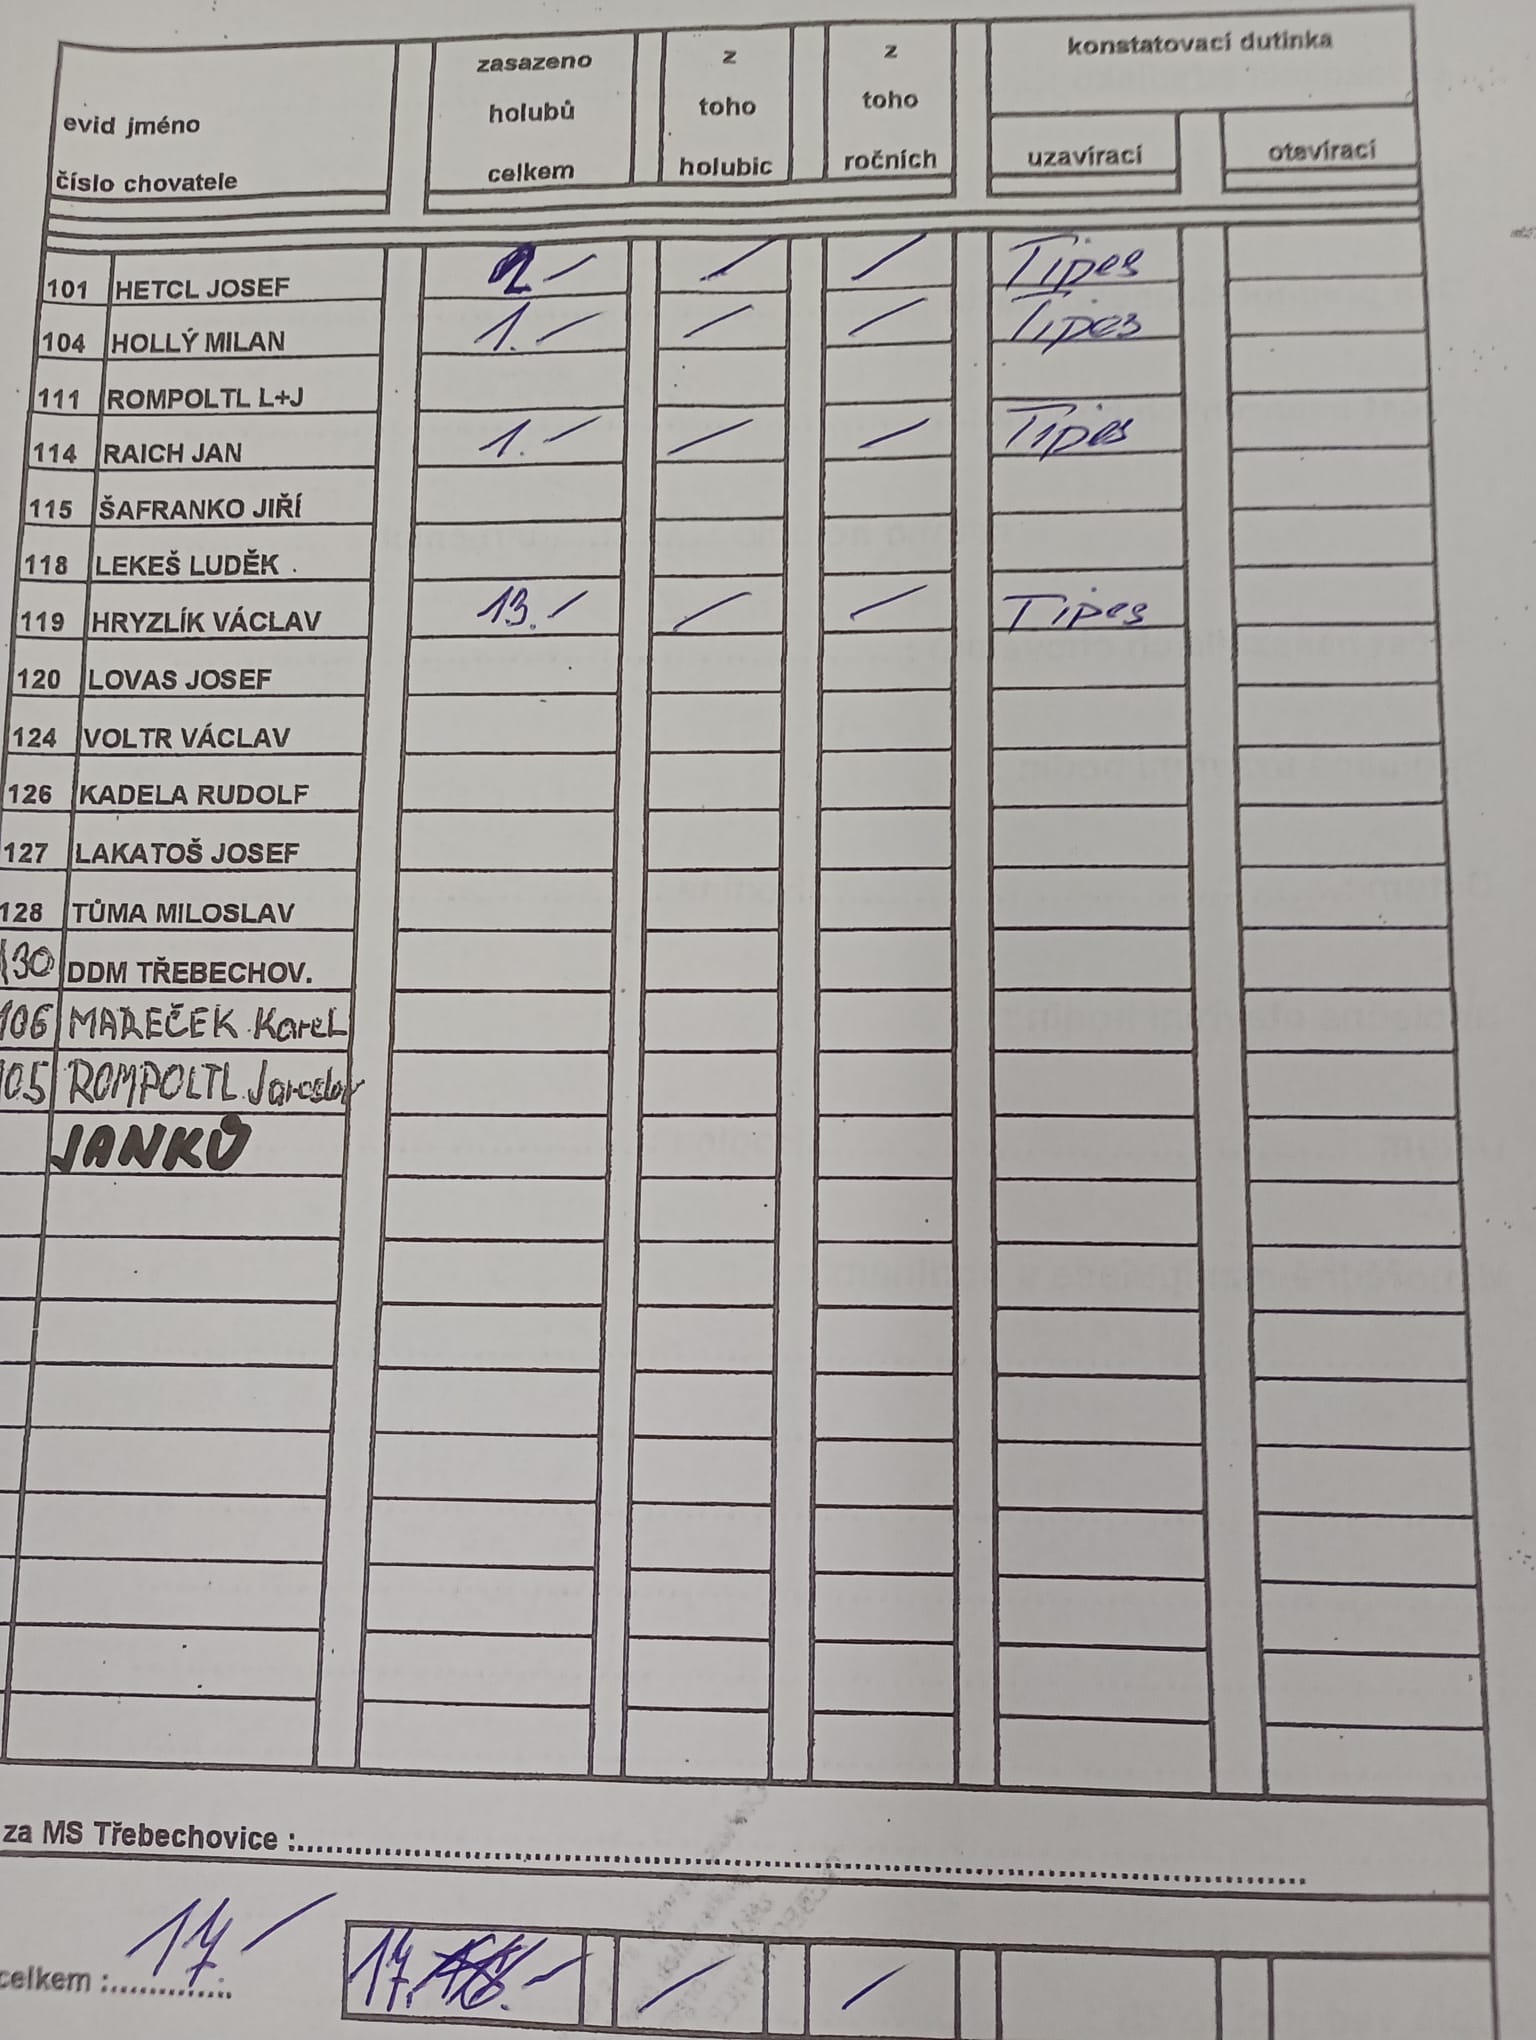 evid jméno
číslo chovatele
zasazeno
holubů
celkem
z
toho
holubic
z
toho
ročních
konstatovací dutinka
uzavírací
otevírací
101 HETCL JOSEF 2 / / / Tipes
104 HOLLÝ MILAN 1. / / / Tipes
111 ROMPOLTL L+J
114 RAICH JAN 1. / / / Tipes
115 ŠAFRANKO JIŘÍ
118 LEKEŠ LUDĚK .
119 HRYZLÍK VÁCLAV 13. / / / Tipes
120 LOVAS JOSEF
124 VOLTR VÁCLAV
126 KADELA RUDOLF
127 LAKATOŠ JOSEF
128 TŮMA MILOSLAV
130 DDM TŘEBECHOV.
106 MAREČEK Karel
105 ROMPOLTL Jaroslav
JANKŮ
za MS Třebechovice :
celkem : 17. / 17. / / /